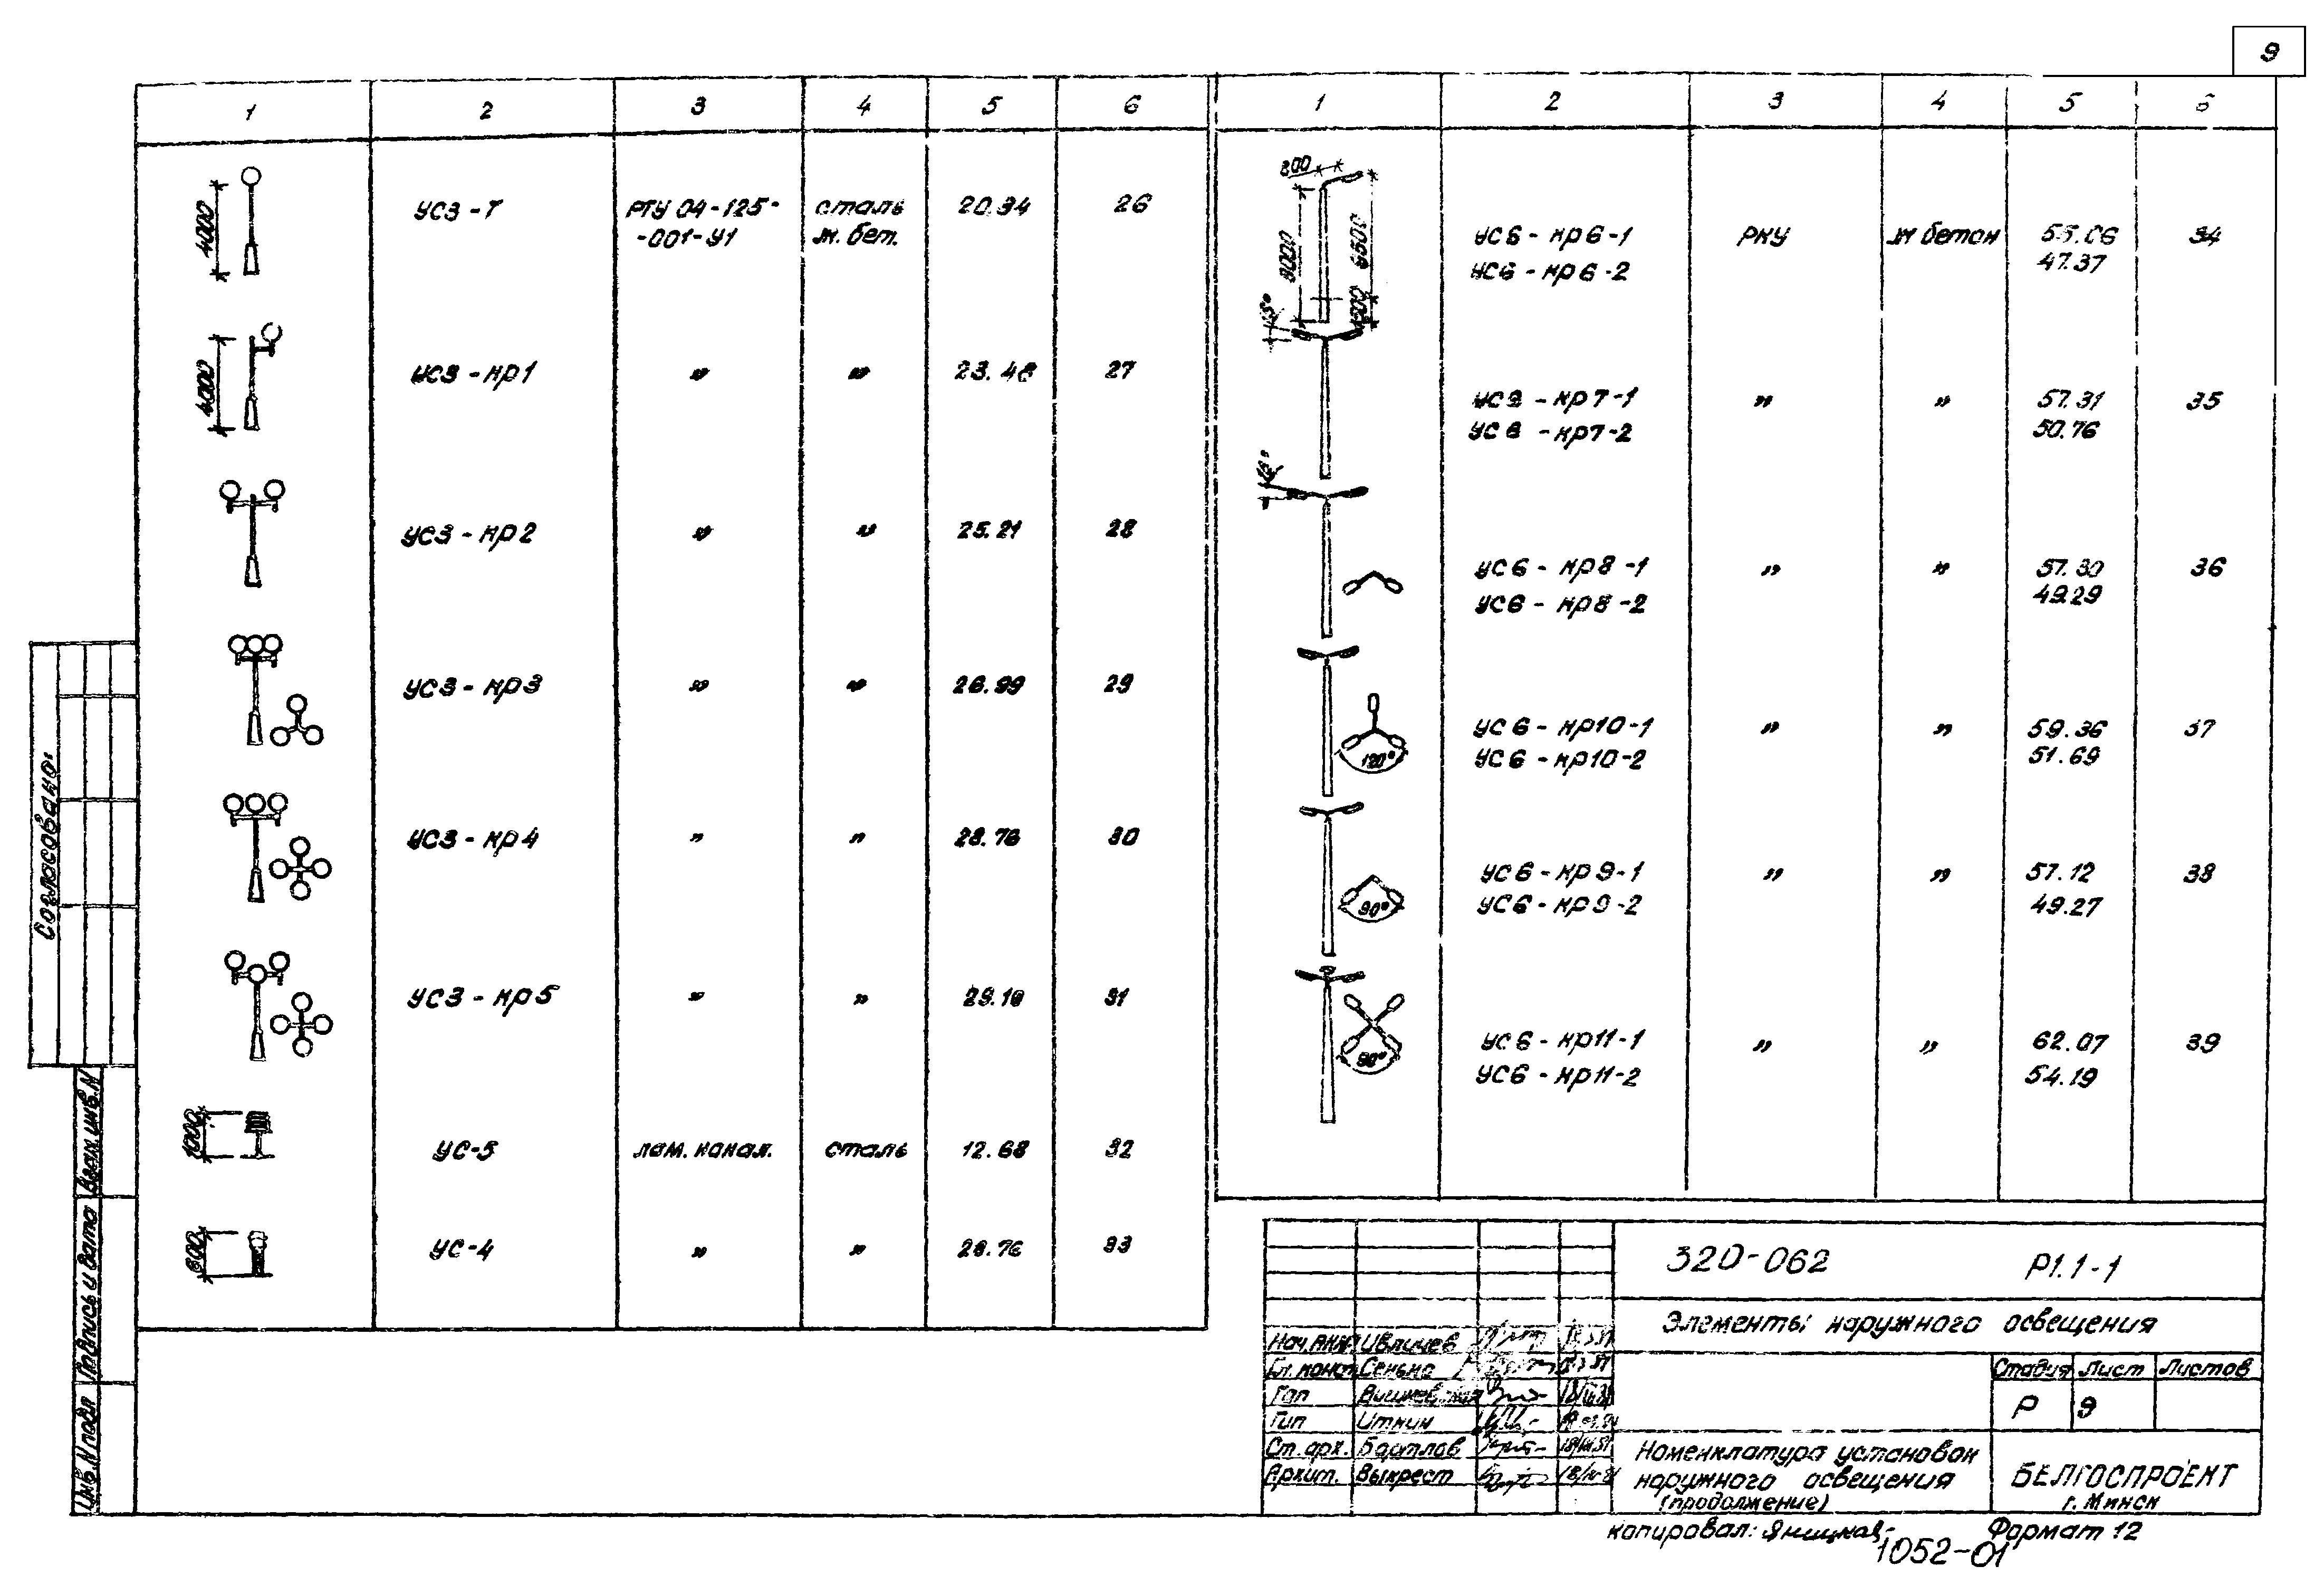 9
1 2 3 4 5 6
4000 УС3-Т РТУ 04-125- сталь 20.34 26
-001-У1 ж. бет.
4000 УС3-кр1 " " 23.48 27
УС3-кр2 " " 25.21 28
УС3-кр3 " " 26.99 29
УС3-кр4 " " 28.76 30
УС3-кр5 " " 29.10 31
1000 УС-5 лам. накал. сталь 12.68 32
600 УС-4 " " 28.76 33
1 2 3 4 5 6
800
8000 6500 УС6-кр6-1 РКУ ж бетон 34
УС6-кр6-2 47.37
УС6-кр7-1 " " 57.31 35
УС6-кр7-2 50.76
УС6-кр8-1 " " 57.30 36
УС6-кр8-2 49.29
УС6-кр10-1 " " 59.36 37
120° УС6-кр10-2 51.69
УС6-кр9-1 " " 57.12 38
90° УС6-кр9-2 49.27
УС6-кр11-1 " " 62.07 39
90° УС6-кр11-2 54.19
Согласовано:
Инв.N подл Подпись и дата Взам.инв.N
320-062 Р1.1-1
Элементы наружного освещения
Стадия Лист Листов
Р 9
Сенько
Гап
Гип Иткин
Ст.арх. Бартлов
Архит. Выкрест
Номенклатура установок
наружного освещения
(продолжение)
БЕЛГОСПРОЕКТ
г. Минск
копировал: Формат 12
1052-01